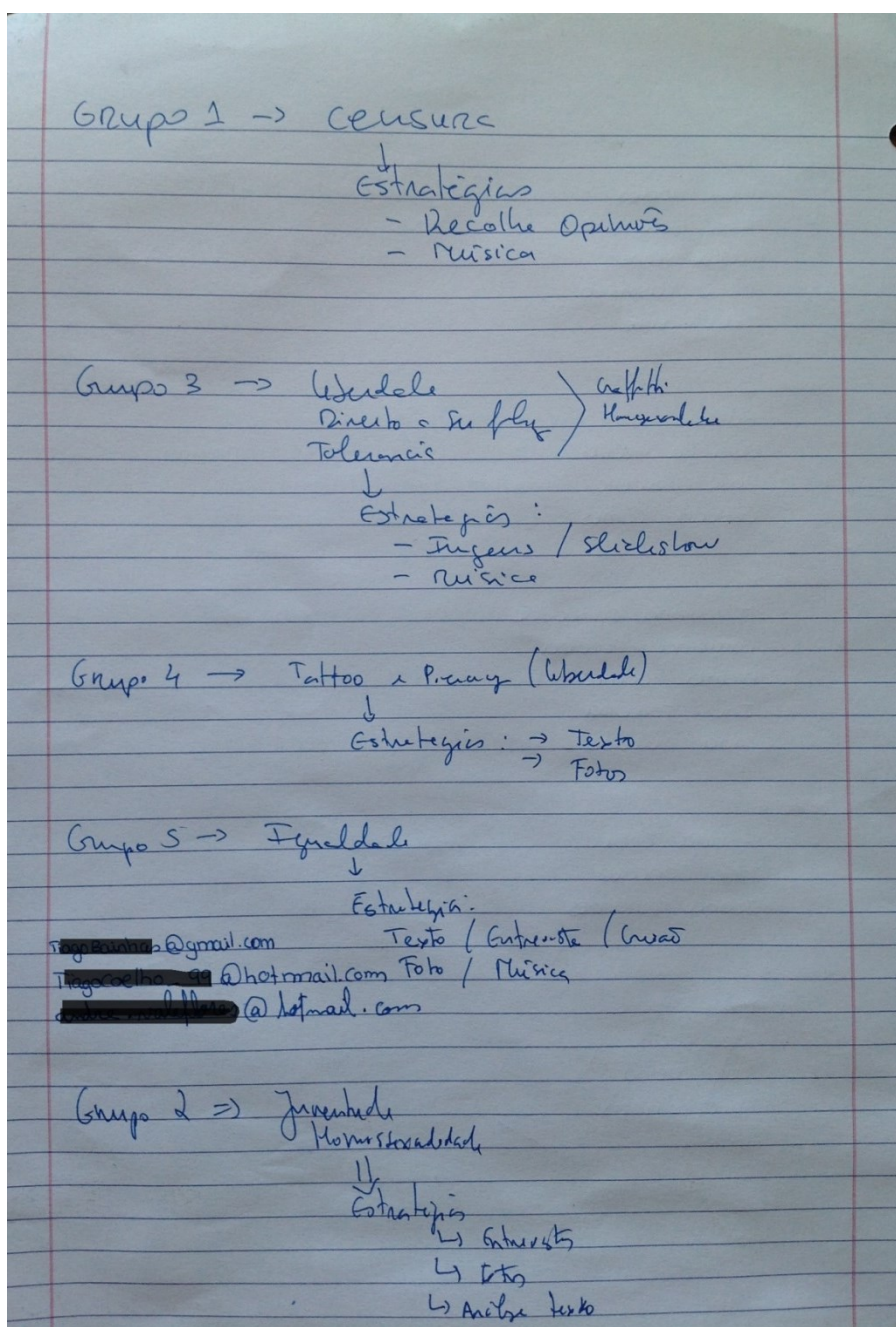 Grupo 1 -> Censura
↓
Estratégias
- Recolhe Opiniões
- Música
Grupo 3 -> Liberdade
Direito a ser feliz
Tolerancia
Graffitti
Homossexualidade
↓
Estrategias :
- Imagens / Slideshow
- Música
Grupo 4 -> Tattoo e Piercing (liberdade)
↓
Estrategias : -> Texto
-> Fotos
Grupo 5 -> Igualdade
↓
Estrategia:
@gmail.com Texto / Entrevista /
@hotmail.com Foto / Música
@hotmail.com
Grupo 2 => Juventude
Homossexualidade
⇓
Estrategias
↳ Entrevistas
↳ Fotos
↳ Análise texto